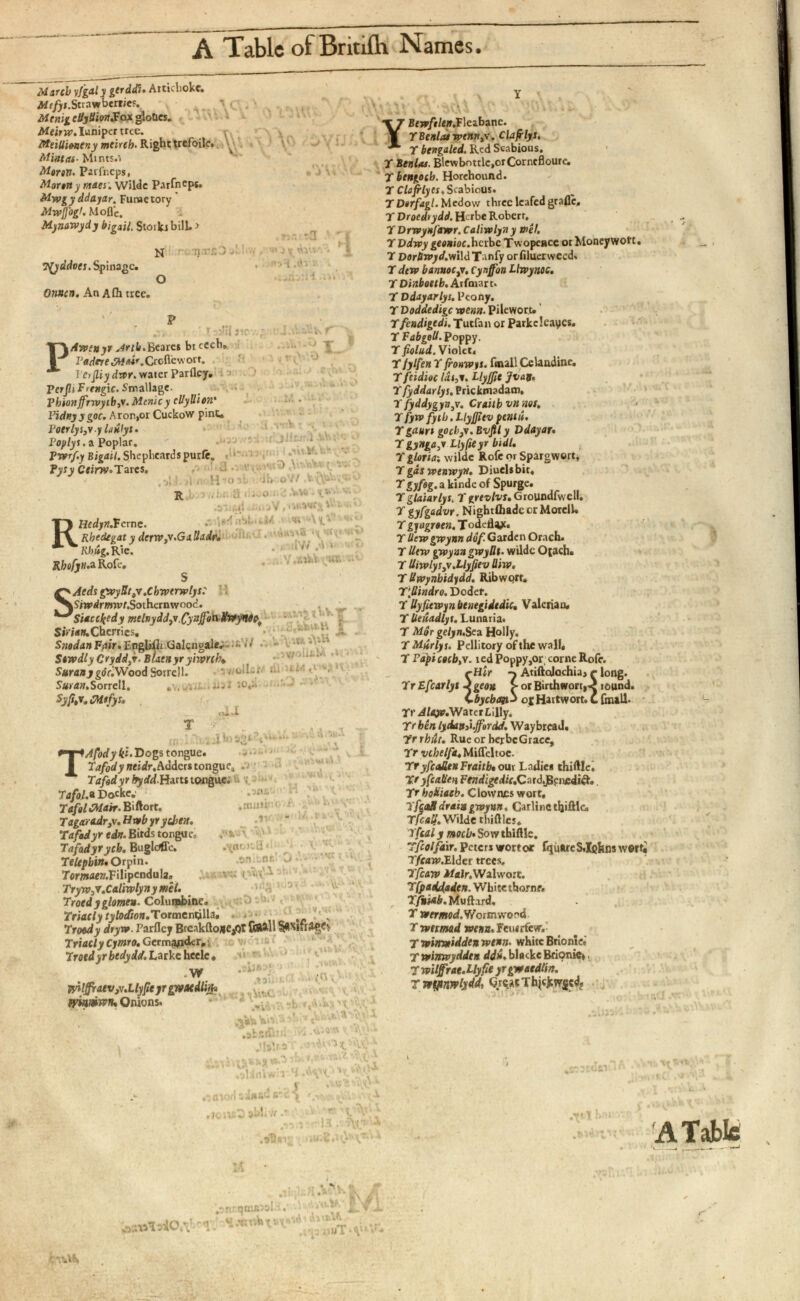 A Table of Britiſh Names.
March yſgal y gerddi. Artichoke.
Mefys. Strawberries.
Menig ellyllion. Fox gloues.
Meirw. Iuniper tree.
Meillioneny meirch. Right trefoile.
Mintas. Mints.
Moron. Parſneps,
Moron y maes. Wilde Parſneps.
Mwg y ddayar. Fumetory
Mwſſogl. Moſſe.
Mynawydy bigail. Storks bill.
N
Yſpinage.
O
Onnen. An Aſh tree.
P
PAwen yr Arth. Beares breech.
Padere Mair. Creſſewort.
Perſli y dwr. water Parſley.
Perſli Frengic. Smallage.
Phionffrwyth,v. Menic y ellyllion.
Pidny y goc. Aron, or Cuckow pint.
Poerlys,v. y laulys.
Poplys. a Poplar.
Pwrſ.y Bigail. Shepheards purſe.
Pysy Ceirw. Tares.
R
RHedyn. Ferne.
Rhedegat y derw,v. Galladr.
Rhúg. Rie.
Rhoſyn. a Roſe.
S
SAeds gwyllt,v. Chwerwlys.
Siwdrmwt. Sothernwood.
Siacckedy melnydd,v. Cynffon
Sirian. Cherries.
Snodan Fair. Engliſh Galengale.
Stwdly Crydd,v. Blaen yr yiwrch.
Suran y góc. Wood Sorrell.
Suran. Sorrell.
Syfi,v. Mefys.
T
TAfod y ki. Dogs tongue.
Tafod y neidr. Adders tongue.
Tafod yr hydd. Harts tongue.
Tafol. a Docke.
Tafol Mair. Biſtort.
Tagaradr,v. Hwb yr ychen.
Tafod yr edn. Birds tongue.
Tafod yr ych. Bugloſſe.
Telephin. Orpin.
Tormaen. Filipendula.
Tryw,v. Caliwlyn y mel.
Troed y glomen. Columbine.
Triacly tylodion. Tormentilla.
Troed y dryw. Parſley Breakſtone, or ſmall Saxifrage.
Triacly Cymro. Germander.
Troed yr hedydd. Larke heele.
W
Wilffraev,v. Llyſie yr gwaedlin.
Onions.
Y
YBewſtlen. Fleabane.
Y Benlas wenn,v. Clafrlys.
Y bengaled. Red Scabious.
Y Benlas. Blewbottle, or Cornefloure.
Y bengoch. Horehound.
Y Clafrlyes. Scabious.
Y Dorfagl. Medow three leafed graſſe.
Y Droedrydd. Herbe Robert.
Y Drwynſawr. Caliwlyn y mel.
Y Ddwy geonioc. herbe Twopence or Moneywort.
Y Dorllwyd. wild Tanſy or ſiluerweed.
Y dew bannoc,v. Cynffon Llwynoc.
Y Dinboeth. Arſmart.
Y Ddayarlys. Peony.
Y Doddedigc wenn. Pilewort.
Y fendigedi. Tutſan or Parkeleaues.
Y Fabgoll. Poppy.
Y fiolud. Violet.
Y fylfen Y fronwys. ſmall Celandine.
Y feidioc lás,v. Llyſſie Jvan.
Y fyddarlys. Prickmadam.
Y fyddygyn,v. Craith vn nos.
Y fyw fyth. Llyſſiev pentú.
Y gaurs goch,v. Bvſtl y Ddayar.
Y gynga,v. Llyſie yr bidl.
Y gloria; wilde Roſe or Spargwort.
Y gás wenwyn. Diuelsbit.
Y gyfog. a kinde of Spurge.
Y glaiarlys. Y grevlvs. Groundſwell.
Y gyſgadvr. Nightſhade or Morell.
Y gyngroen. Todeflax.
Y llew gwynn dóf. Garden Orach.
Y llew gwynn gwyllt. wilde Orach.
Y lliwlys,v. Llyſiev lliw.
Y llwynhidydd. Ribwort.
Y llindro. Doder.
Y llyſiewyn benegidedic. Valerian.
Y lleuadlys. Lunaria.
Y Môr gelyn. Sea Holly.
Y Múrlys. Pellitory of the wall.
Y Papi coch,v. red Poppy, or corne Roſe.
Yr Eſcarlys { Hir geon bychan } Ariſtolochia, or Birthwort, or Hartwort. { long. round. ſmall.
Yr Alaw. Water Lilly.
Yr hên lydan,i.fforda. Waybread.
Yr rhût. Rue or herbe Grace,
Yr vchelfa. Miſſeltoe.
Yr yſcallen Fraith. our Ladies thiſtle.
Yr yſcallen Fendigedic. Card, Benedict.
Yr holliach. Clownes wort.
Yſcall drain gwynn. Carline thiſtle.
Yſcall. Wilde thiſtles.
Yſcal y moch. Sow thiſtle.
Yſcolfair. Peters wort or ſquare S. Iohns wort,
Yſcaw. Elder trees.
Yſcaw Mair. Walwort.
Yſpaddaden. White thorne.
Yſniab. Muſtard.
Y wermod. Wormwood
Y wermod wenn. Feuerfew.
Y winwidden wenn. white Brionie.
Y winwydden ddú. blacke Brionie.
Y wilffrae. Llyſie yr gwaedlin.
Great Thickweed.
A Table